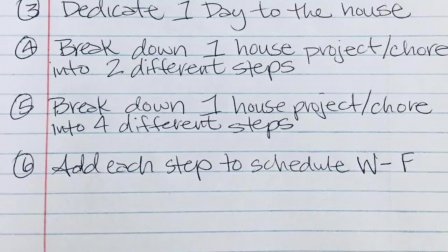 ③ Dedicate 1 Day to the house
④ Break down 1 house project/chore
into 2 different steps
⑤ Break down 1 house project/chore
into 4 different steps
⑥ Add each step to schedule W-F